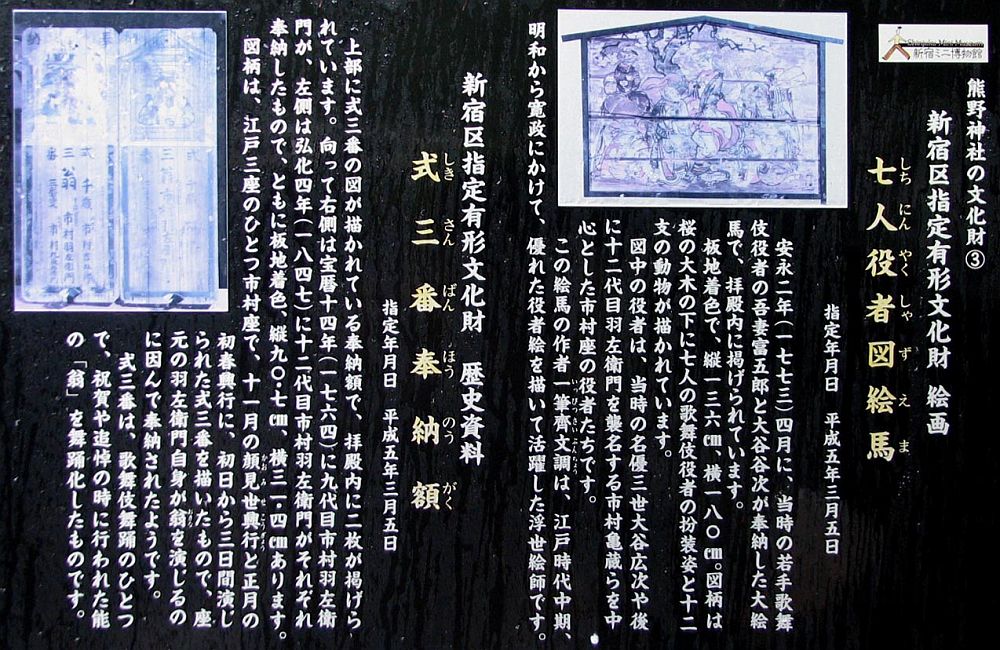 Shinjuku Mini Museum
新宿ミニ博物館
熊野神社の文化財③
新宿区指定有形文化財 絵画
七人役者図絵馬
しちにんやくしゃずえま
指定年月日 平成五年三月五日
安永二年(一七七三)四月に、当時の若手歌舞
伎役者の吾妻富五郎と大谷谷次が奉納した大絵
馬で、拝殿内に掲げられています。
板地着色で、縦一三六㎝、横一八〇㎝。図柄は
桜の大木の下に七人の歌舞伎役者の扮装姿と十二
支の動物が描かれています。
図中の役者は、当時の名優三世大谷広次や後
に十二代目羽左衛門を襲名する市村亀蔵らを中
心とした市村座の役者たちです。
この絵馬の作者一筆齊文調は、江戸時代中期、
いっぴつさいぶんちょう
明和から寛政にかけて、優れた役者絵を描いて活躍した浮世絵師です。
新宿区指定有形文化財 歴史資料
式三番奉納額
しきさんばんほうのうがく
指定年月日 平成五年三月五日
上部に式三番の図が描かれている奉納額で、拝殿内に二枚が掲げら
れています。向って右側は宝暦十四年(一七六四)に九代目市村羽左衛
門が、左側は弘化四年(一八四七)に十二代目市村羽左衛門がそれぞれ
奉納したもので、ともに板地着色、縦九〇・七㎝、横三一・四㎝あります。
図柄は、江戸三座のひとつ市村座で、十一月の顔見世興行と正月の
かおみせこうぎょう
初春興行に、初日から三日間演じ
られた式三番を描いたもので、座
元の羽左衛門自身が翁を演じるの
おきな
に因んで奉納されたようです。
式三番は、歌舞伎舞踊のひとつ
で、祝賀や追悼の時に行われた能
の「翁」を舞踊化したものです。